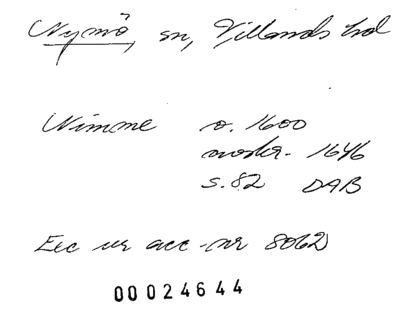 Nymö, sn, Villands hd
Nimme o. 1600
avskr. 1646
s. 82 DAB
Exc ur acc-nr 8062
00024644